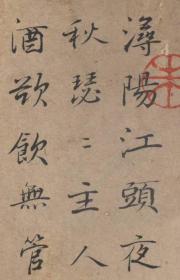 潯陽江頭夜
秋瑟〻主人
酒欲飲無管